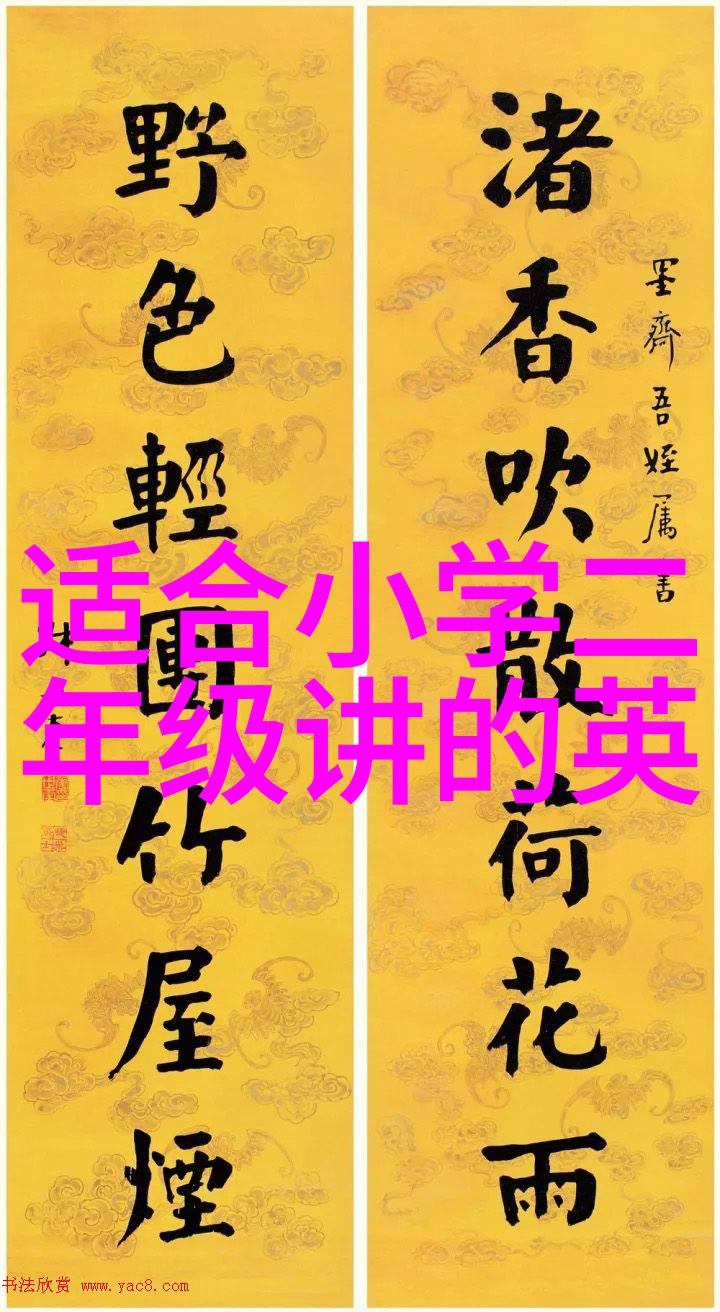 墨齋吾姪属書
渚香吹散荷花雨
野色輕團竹屋煙
适合小学二
年级讲的英
书法欣赏 www.yac8.com